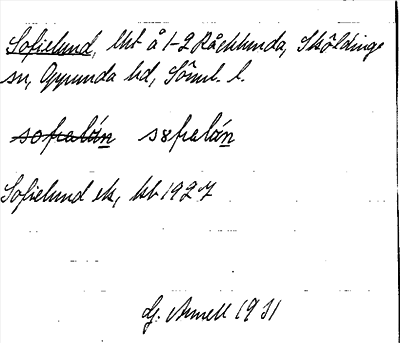 Sofielund, lht å 1-2 Råcklunda, Sköldinge
sn, Oppunda hd, Söml. l.
sofialún sɛfialún
Sofielund ek, kb 1927
G. Arnell 1931